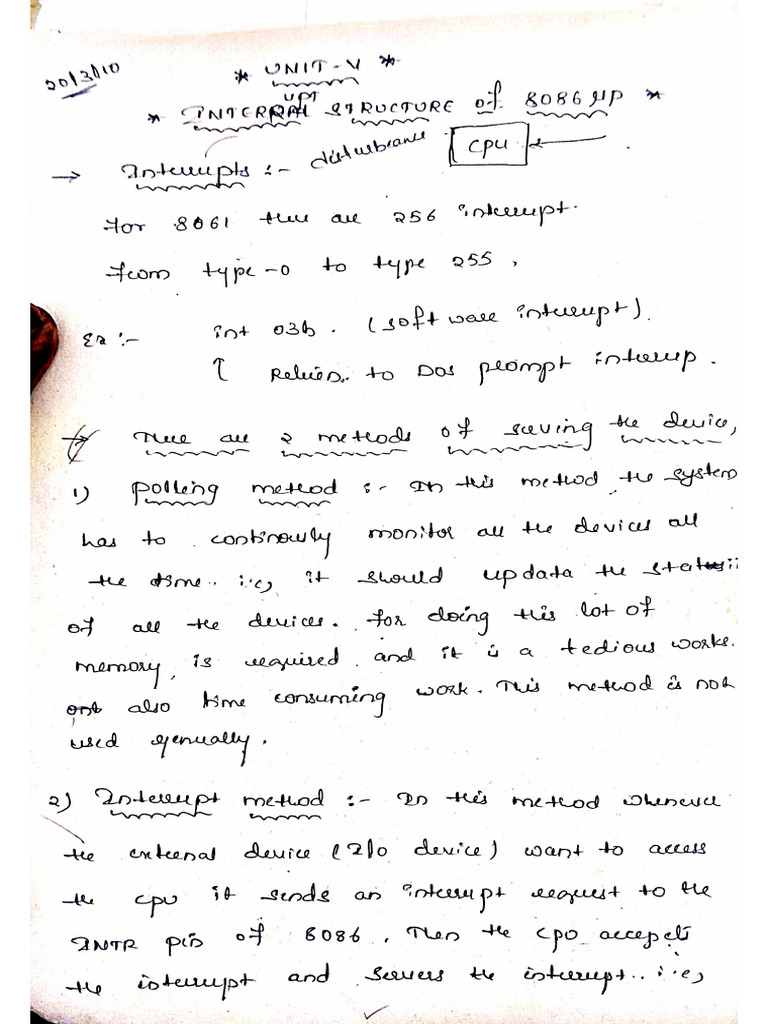 20/3/10
* UNIT-V *
UPT
* INTERRAL STRUCTURE of 8086 μP *
→ Interrupts :- disturbance CPU
For 8061 there are 256 interrupt.
From type-0 to type 255,
Ex :- int 03h. (software interrupt).
Return to DOS prompt interrup.
→ There are 2 methods of serving the device,
1) Polling method :- In this method the system
has to continously monitor all the devices all
the time.. i.e, it should updata the
of all the devices. For doing this lot of
memory, is required and it is a tedious works.
also time consuming work. This method is not
used genually.
2) Interrupt method :- In this method whenever
the external device (I/O device) want to access
the cpu it sends an interrupt request to the
INTR pin of 8086. Then the cpu accepets
the interrupt and servers the interrupt.. i.e,